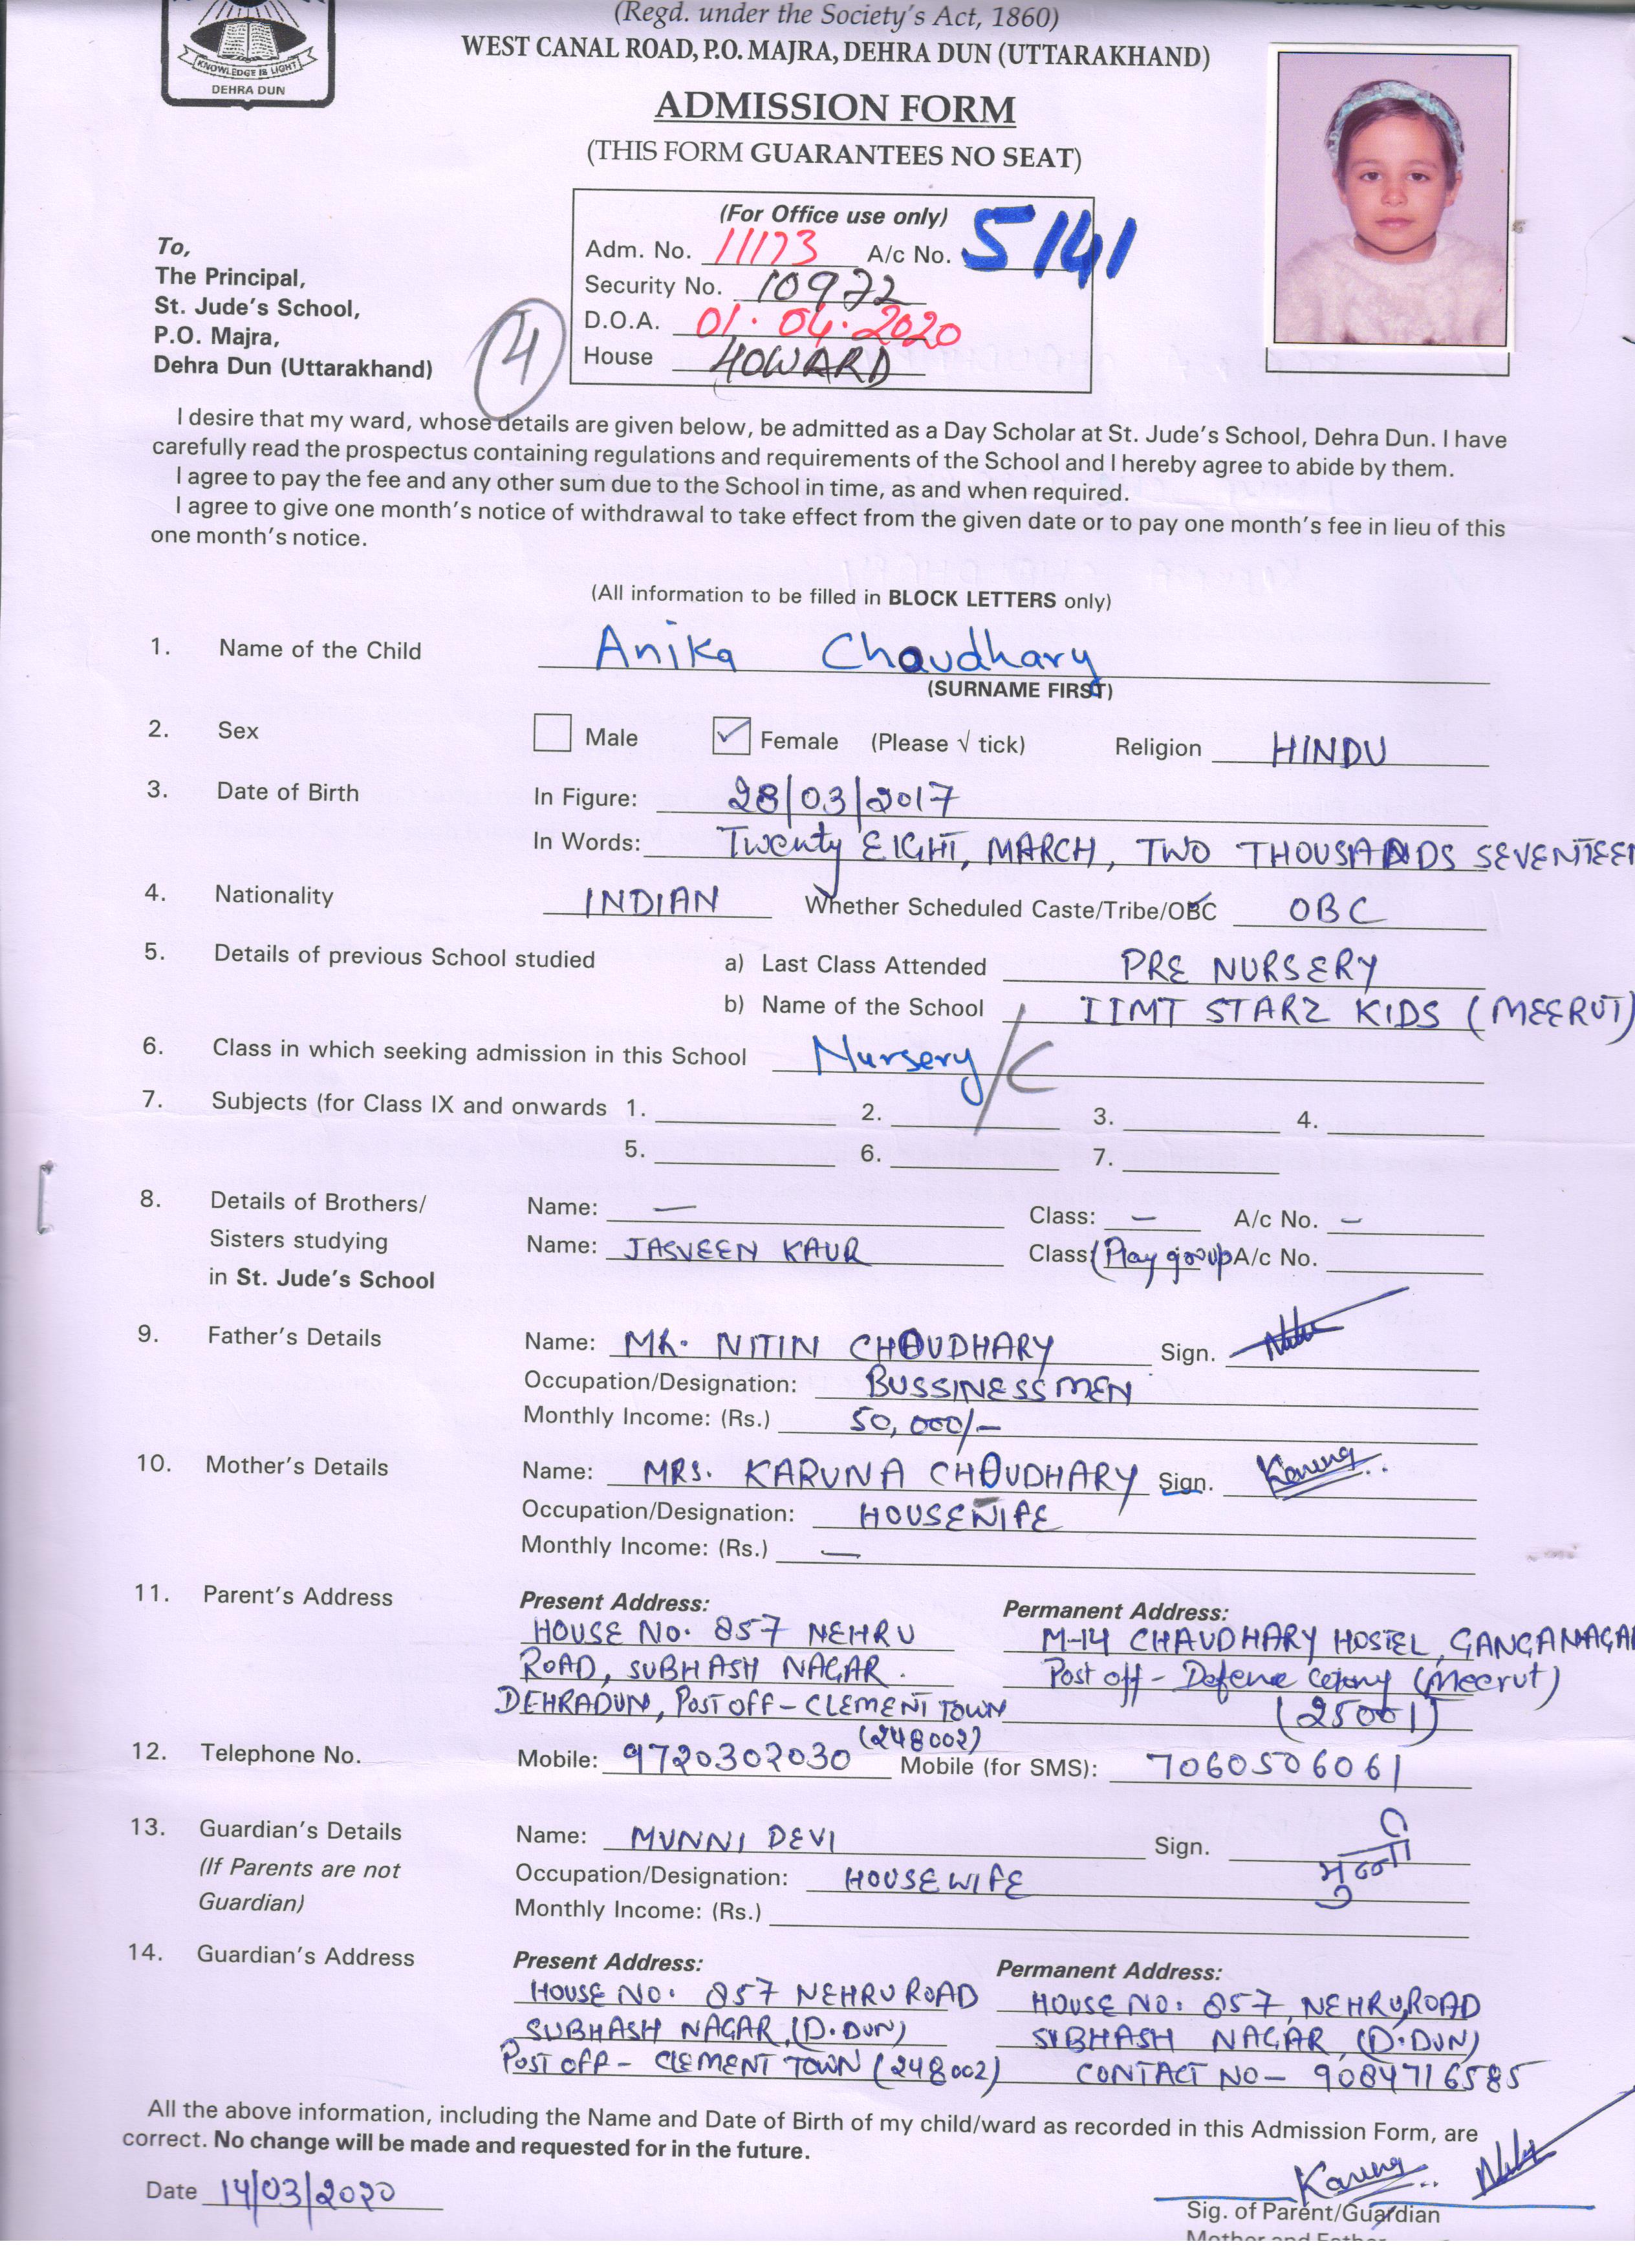 (Regd. under the Society's Act, 1860)
WEST CANAL ROAD, P.O. MAJRA, DEHRA DUN (UTTARAKHAND)
KNOWLEDGE IS LIGHT
DEHRA DUN
ADMISSION FORM
(THIS FORM GUARANTEES NO SEAT)
(For Office use only)
Adm. No. 11173 A/c No. 5141
Security No. 10972
D.O.A. 01.04.2020
House HOWARD
4
To,
The Principal,
St. Jude's School,
P.O. Majra,
Dehra Dun (Uttarakhand)
I desire that my ward, whose details are given below, be admitted as a Day Scholar at St. Jude's School, Dehra Dun. I have
carefully read the prospectus containing regulations and requirements of the School and I hereby agree to abide by them.
I agree to pay the fee and any other sum due to the School in time, as and when required.
I agree to give one month's notice of withdrawal to take effect from the given date or to pay one month's fee in lieu of this
one month's notice.
(All information to be filled in BLOCK LETTERS only)
1. Name of the Child Anika Chaudhary
(SURNAME FIRST)
2. Sex Male ✓ Female (Please √ tick) Religion HINDU
3. Date of Birth In Figure: 28/03/2017
In Words: Twenty EIGHT, MARCH, TWO THOUSANDS SEVENTEEN
4. Nationality INDIAN Whether Scheduled Caste/Tribe/OBC OBC
5. Details of previous School studied a) Last Class Attended PRE NURSERY
b) Name of the School IIMT STARZ KIDS (MEERUT)
6. Class in which seeking admission in this School Nursery/C
7. Subjects (for Class IX and onwards 1. 2. 3. 4.
5. 6. 7.
8. Details of Brothers/ Name: — Class: — A/c No. —
Sisters studying Name: JASVEEN KAUR Class: (Play group A/c No.
in St. Jude's School
9. Father's Details Name: MR. NITIN CHAUDHARY Sign.
Occupation/Designation: BUSSINESSMEN
Monthly Income: (Rs.) 50,000/-
10. Mother's Details Name: MRS. KARUNA CHAUDHARY Sign. Karuna
Occupation/Designation: HOUSEWIFE
Monthly Income: (Rs.) —
11. Parent's Address Present Address: Permanent Address:
HOUSE NO. 857 NEHRU M-14 CHAUDHARY HOSTEL, GANGANAGAR
ROAD, SUBHASH NAGAR. Post off - Defence colony (Meerut)
DEHRADUN, Post OFF - CLEMENT TOWN (25001)
(248002)
12. Telephone No. Mobile: 9720302030 Mobile (for SMS): 7060506061
13. Guardian's Details Name: MUNNI DEVI Sign. मुन्नी
(If Parents are not Occupation/Designation: HOUSEWIFE
Guardian) Monthly Income: (Rs.)
14. Guardian's Address Present Address: Permanent Address:
HOUSE NO. 857 NEHRU ROAD HOUSE NO. 857, NEHRU, ROAD
SUBHASH NAGAR, (D.DUN) SUBHASH NAGAR, (D.DUN)
Post OFF - CLEMENT TOWN (248002) CONTACT NO - 9084716585
All the above information, including the Name and Date of Birth of my child/ward as recorded in this Admission Form, are
correct. No change will be made and requested for in the future.
Date 14/03/2020 Karuna
Sig. of Parent/Guardian
Mother and Father